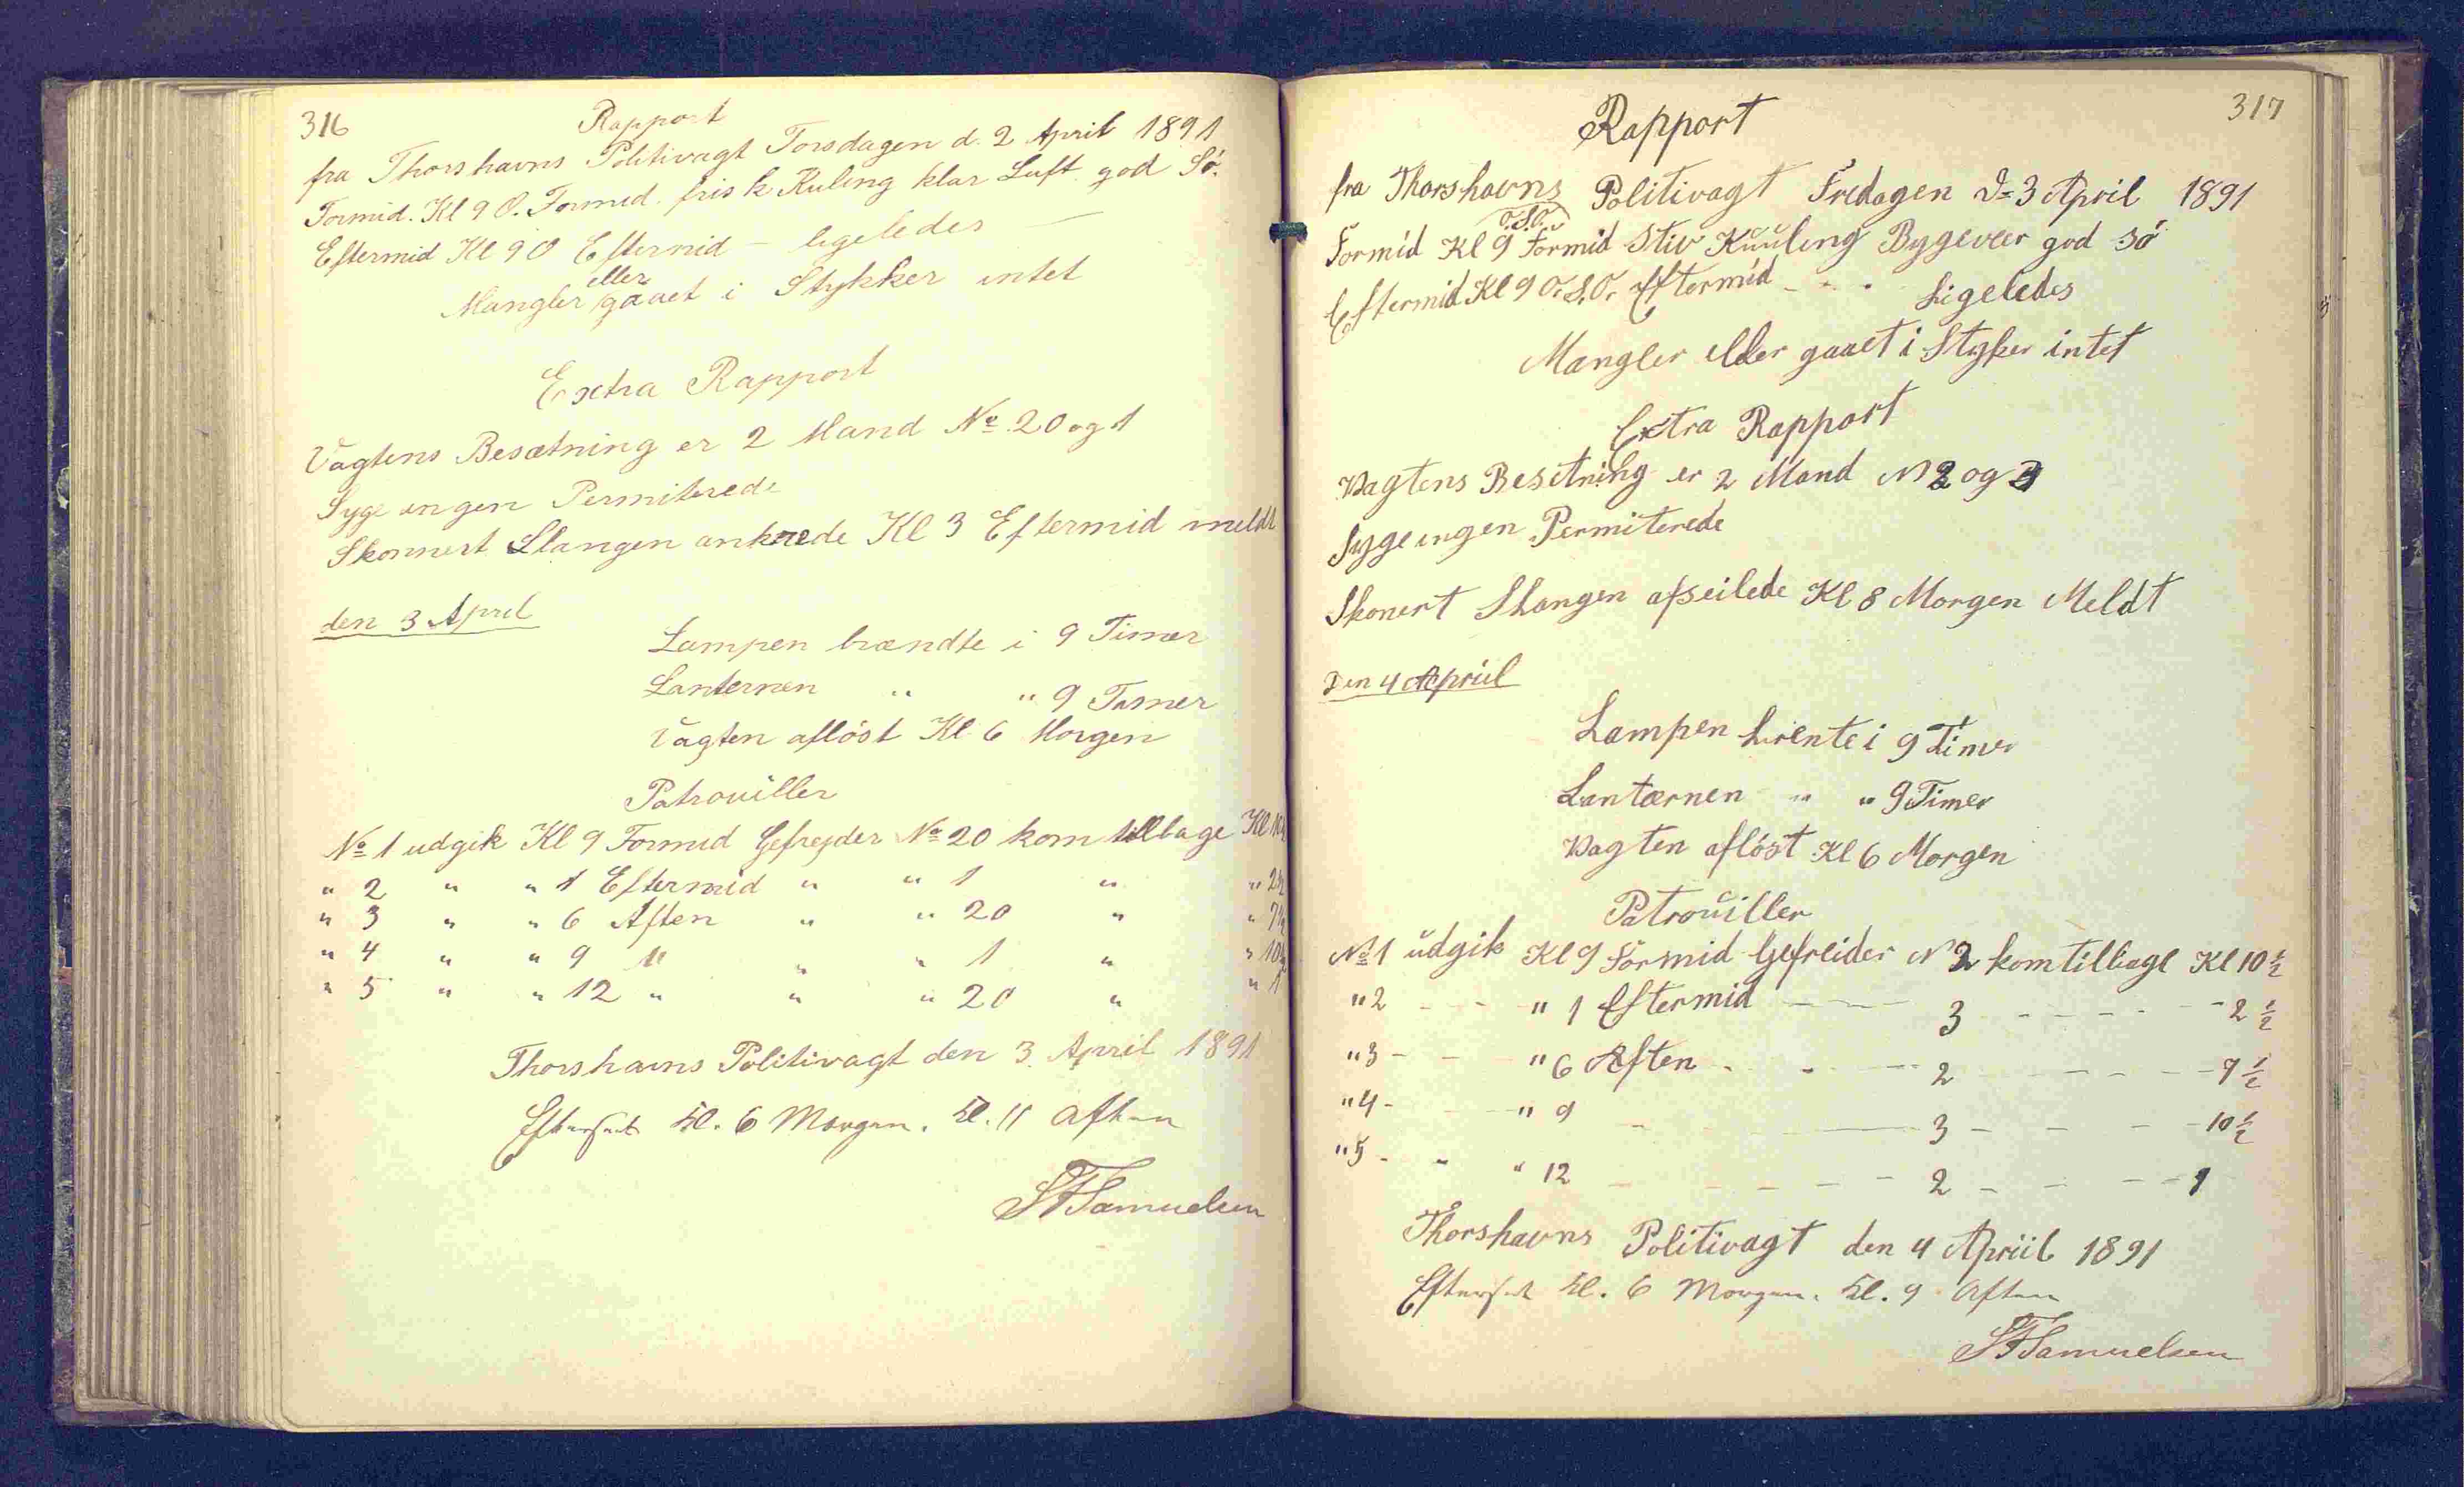 316
Rapport
fra Thorshavns Politivagt Torsdagen d. 2 April 1891
Formid. Kl 9 O. Formid. frisk Kuling klar Luft god Sö.
Eftermid Kl 9 O Eftermid — ligeledes —
eller
Mangler gaaet i Stykker intet
Extra Rapport
Vagtens Besætning er 2 Mand No 20 og 1
Syge ingen Permiterede
Skonnert Slangen ankrede Kl 3 Eftermid meldt
den 3 April
Lampen brændte i 9 Timer
Lanternen " " 9 Timer
Vagten aflöst Kl 6 Morgen
Patrouiller
No 1 udgik Kl 9 Formid Gefrejder No 20 kom tilbage Kl
" 2 " " 1 Eftermid " " 1 " " 2½
" 3 " " 6 Aften " " 20 " " 7½
" 4 " " 9 " " " 1 " " 10½
" 5 " " 12 " " " 20 " " 1
Thorshavns Politivagt den 3. April 1891
Efterseet Kl. 6 Morgen. Kl. 11 Aften
Samuelsen
317
Rapport
fra Thorshavns Politivagt Fredagen D= 3 April 1891
O.S.O.
Formid Kl 9 Formid Stiv Kuuling Bygeveer god Sö
Eftermid Kl 9 O.S.O. Eftermid - - - Ligeledes
Mangler eller gaaet i Styker intet
Extra Rapport
Vagtens Besetning er 2 Mand N 2 og 3
Syge ingen Permiterede
Skonert Slangen afseilede Kl 8 Morgen Meldt
Den 4 Apriil
Lampen brente i 9 Timer
Lantærnen " " 9 Timer
Vagten aflöst Kl 6 Morgen
Patrouiller
No 1 udgik Kl 9 Formid Gefreider N 2 kom tilbage Kl 10½
" 2 - - - " 1 Eftermid - - - 3 - - - - 2½
" 3 - - " 6 Aften - - - 2 - - - - 7½
" 4 - - " 9 - - 3 - - - - 10½
" 5 - - " 12 - - - - 2 - - - - 1
Thorshavns Politivagt den 4 Apriil 1891
Efterseet Kl. 6 Morgen. Kl. 9 Aften
Samuelsen